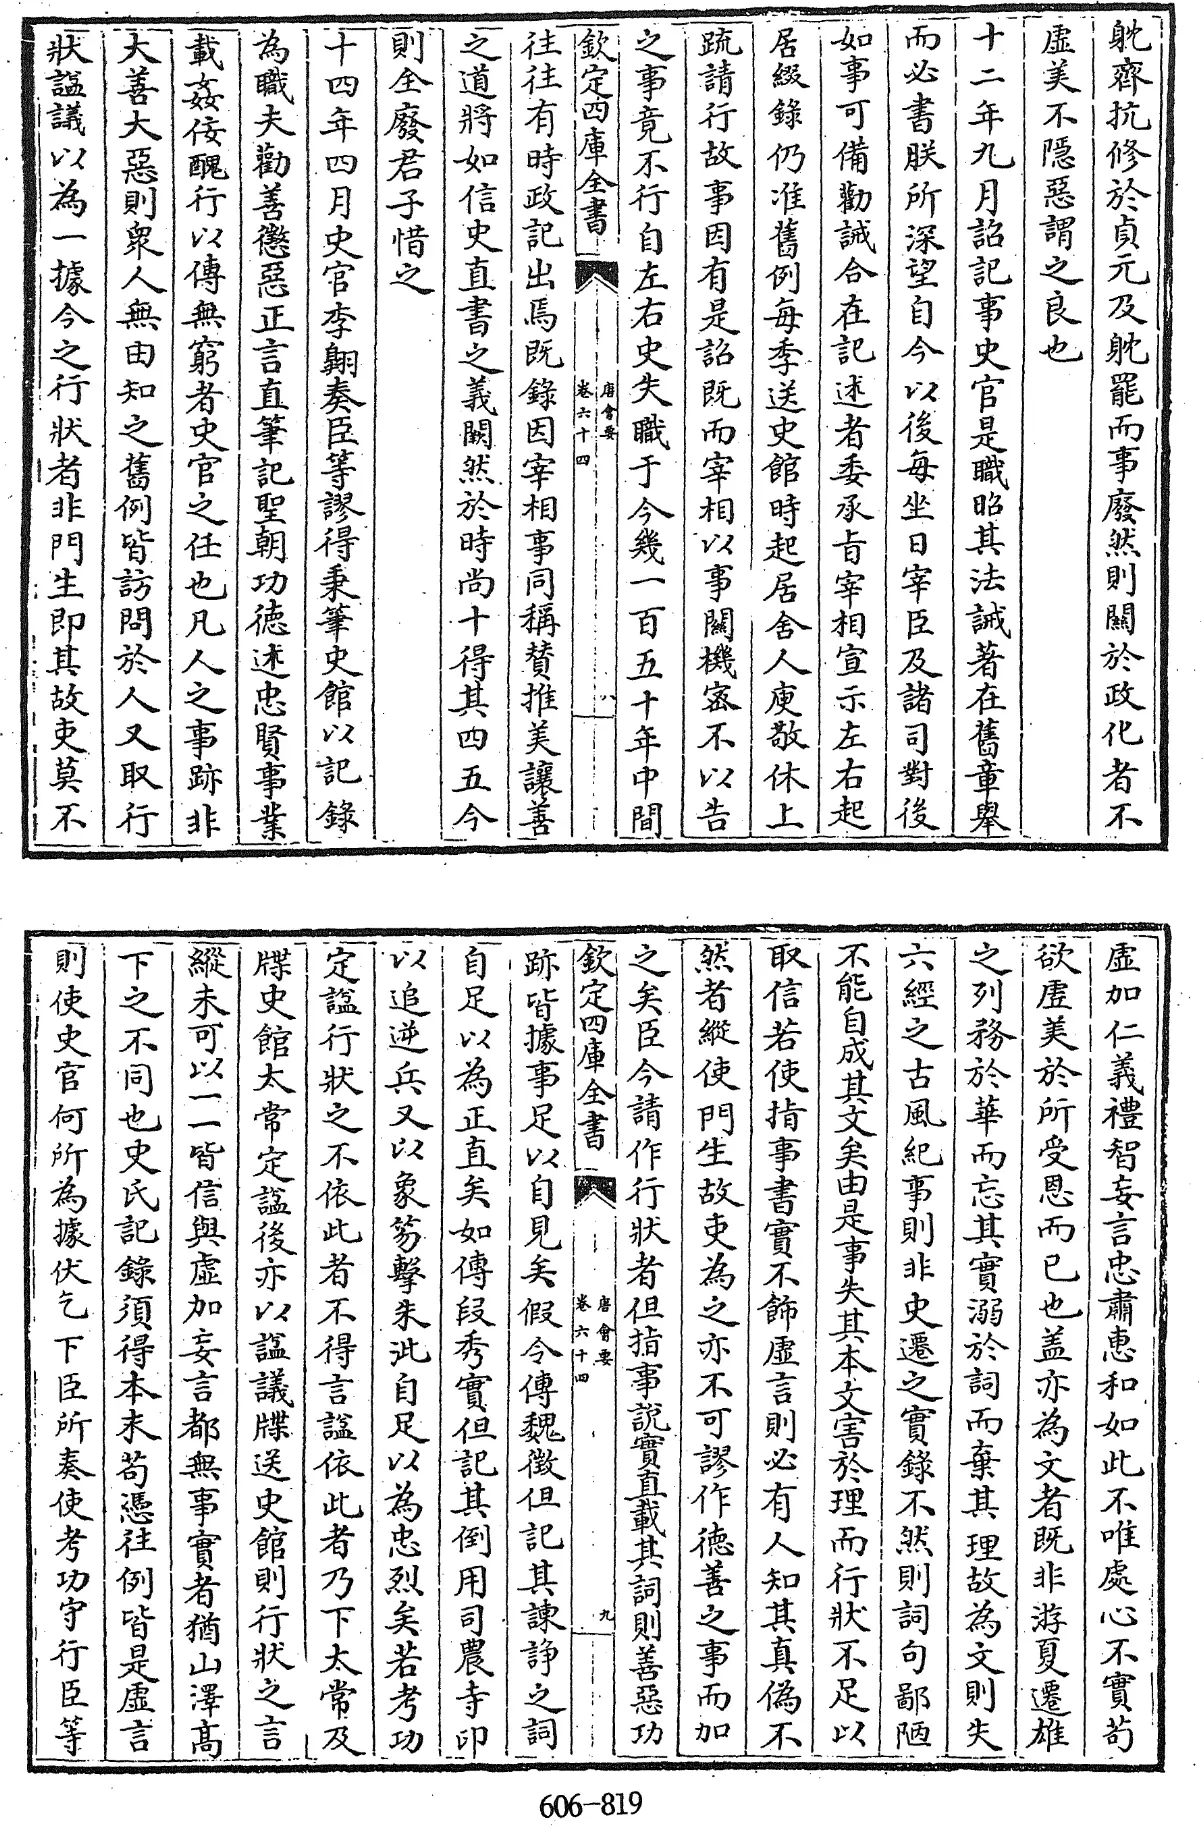 躭齊抗修於貞元及躭罷而事廢然則關於政化者不
虛美不隱惡謂之良也
十二年九月詔記事史官是職昭其法誡著在舊章舉
而必書朕所深望自今以後每坐日宰臣及諸司對後
如事可備勸誡合在記述者委承㫖宰相宣示左右起
居綴錄仍准舊例每季送史館時起居舍人庾敬休上
䟽請行故事因有是詔既而宰相以事關機宻不以告
之事竟不行自左右史失職于今幾一百五十年中間
欽定四庫全書
唐會要
卷六十四
八
往往有時政記出焉既錄因宰相事同稱賛推美讓善
之道將如信史直書之義闕然於時尚十得其四五今
則全廢君子惜之
十四年四月史官李翺奏臣等謬得秉筆史館以記錄
為職夫勸善懲惡正言直筆記聖朝功德述忠賢事業
載姦佞醜行以傳無窮者史官之任也凡人之事跡非
大善大惡則衆人無由知之舊例皆訪問於人又取行
狀諡議以為一據今之行狀者非門生即其故吏莫不
虛加仁義禮智妄言忠肅惠和如此不唯處心不實苟
欲虛美於所受恩而已也盖亦為文者既非游夏遷雄
之列務於華而忘其實溺於詞而棄其理故為文則失
六經之古風紀事則非史遷之實錄不然則詞句鄙陋
不能自成其文矣由是事失其本文害於理而行狀不足以
取信若使指事書實不飾虛言則必有人知其真偽不
然者縱使門生故吏為之亦不可謬作德善之事而加
之矣臣今請作行狀者但指事說實直載其詞則善惡功
欽定四庫全書
唐會要
卷六十四
九
跡皆據事足以自見矣假令傳魏徵但記其諫諍之詞
自足以為正直矣如傳段秀實但記其倒用司農寺印
以追逆兵又以象笏擊朱泚自足以為忠烈矣若考功
定諡行狀之不依此者不得言諡依此者乃下太常及
牒史館太常定諡後亦以諡議牒送史館則行狀之言
縱未可以一一皆信與虛加妄言都無事實者猶山澤髙
下之不同也史氏記錄須得本末苟憑往例皆是虛言
則使史官何所為據伏乞下臣所奏使考功守行臣等
606-819